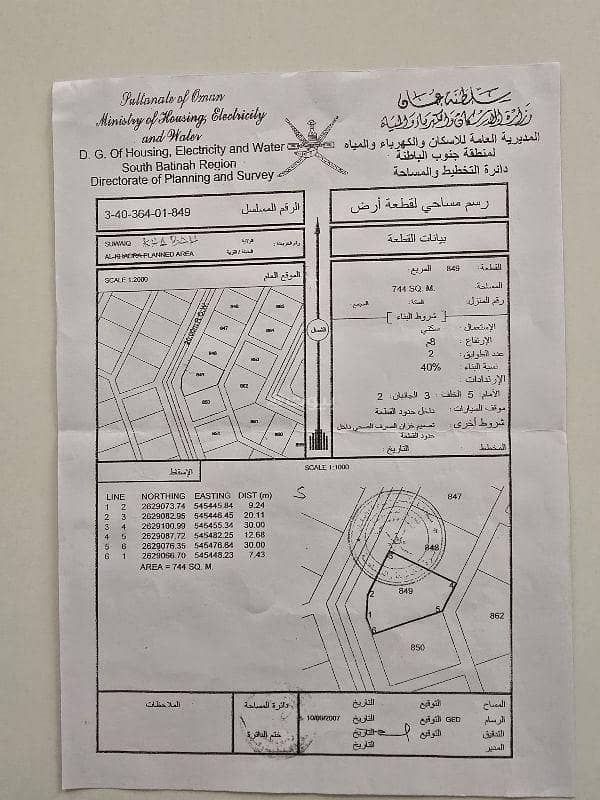 Sultanate of Oman
Ministry of Housing, Electricity
and Water
D. G. Of Housing, Electricity and Water
South Batinah Region
Directorate of Planning and Survey
سلطنة عمان
وزارة الاسكان والكهرباء والمياه
المديرية العامة للاسكان والكهرباء والمياه
لمنطقة جنوب الباطنة
دائرة التخطيط والمساحة
3-40-364-01-849 الرقم المسلسل
SUWAIQ KHABAH
AL-KHADRA PLANNED AREA
SCALE 1:2000 الموقع العام
20.00m R.O.W.
846
847
865
864
848
863
849
862
850
851
861
860
الشمال
رسم مساحي لقطعة أرض
بيانات القطعة
القطعة: 849 المربع:
المساحة: 744 SQ. M.
رقم المنزل: السكة: المجمع:
[ شروط البناء ]
الإستعمال: سكني
الإرتفاع: 8م
عدد الطوابق: 2
نسبة البناء: 40%
الإرتدادات:
الأمام: 5 الخلف: 3 الجانبان: 2
موقف السيارات: داخل حدود القطعة
شروط أخرى: تصميم خزان الصرف الصحي داخل
حدود القطعة
المخطط: التاريخ:
الإسقاط
SCALE 1:1000
LINE NORTHING EASTING DIST (m)
1 2 2629073.74 545445.84 9.24
2 3 2629082.95 545446.45 20.11
3 4 2629100.99 545455.34 30.00
4 5 2629087.72 545482.25 12.68
5 6 2629076.35 545476.64 30.00
6 1 2629066.70 545448.23 7.43
AREA = 744 SQ. M.
S
847
848
849
850
862
3
4
2
5
1
6
الملاحظات
دائرة المساحة
ختم الدائرة
المساح التوقيع التاريخ
الرسام GED التوقيع التاريخ 10/06/2007
التدقيق التوقيع التاريخ
المدير التاريخ